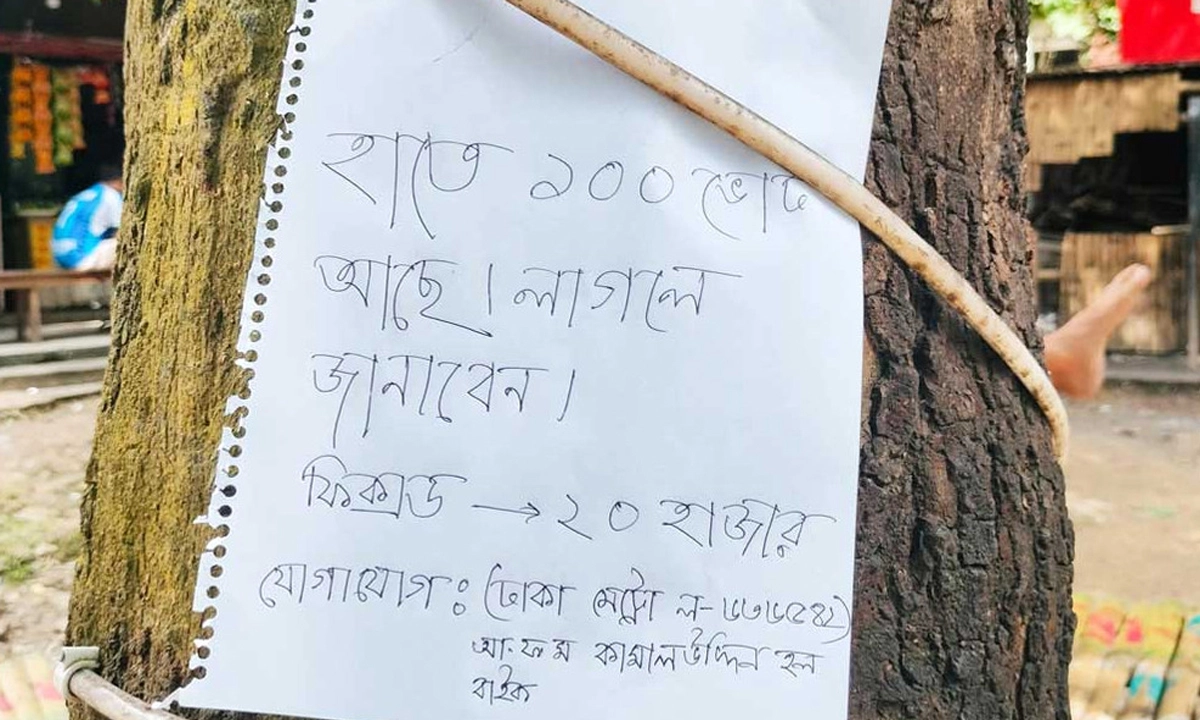 হাতে ১০০ ভোট
আছে। লাগলে
জানাবেন।
ফিক্সড → ২০ হাজার
যোগাযোগ : (ঢাকা মেট্রো ল- ৬৩৬৫৪২)
আ.ফ ম কামালউদ্দিন হল
বাইক